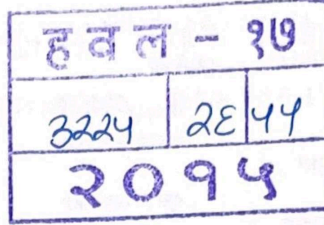 हवल - १७
३२२५ २६ ५५
२०१५